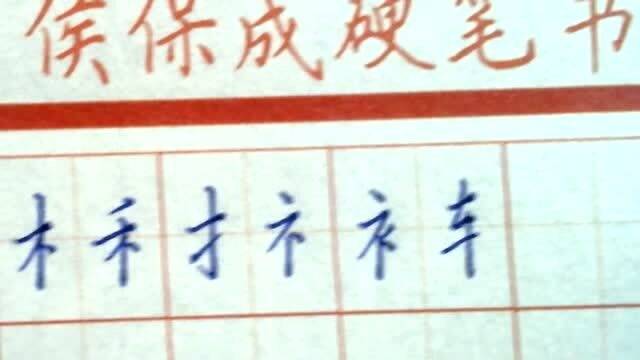 侯保成硬笔书
木禾扌礻衤车